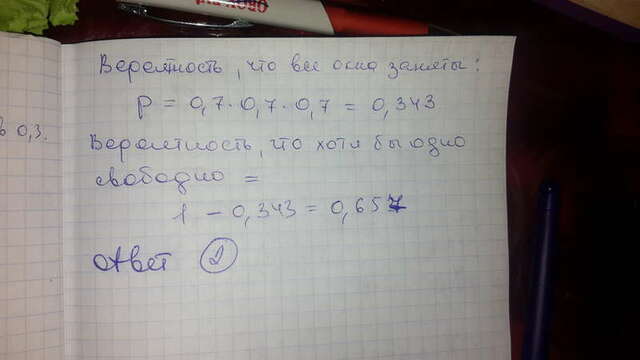 Вероятность, что все окна заняты:
p = 0,7·0,7·0,7 = 0,343
0,3.
Вероятность, что хотя бы одно
свободно =
1 - 0,343 = 0,657
Ответ 2